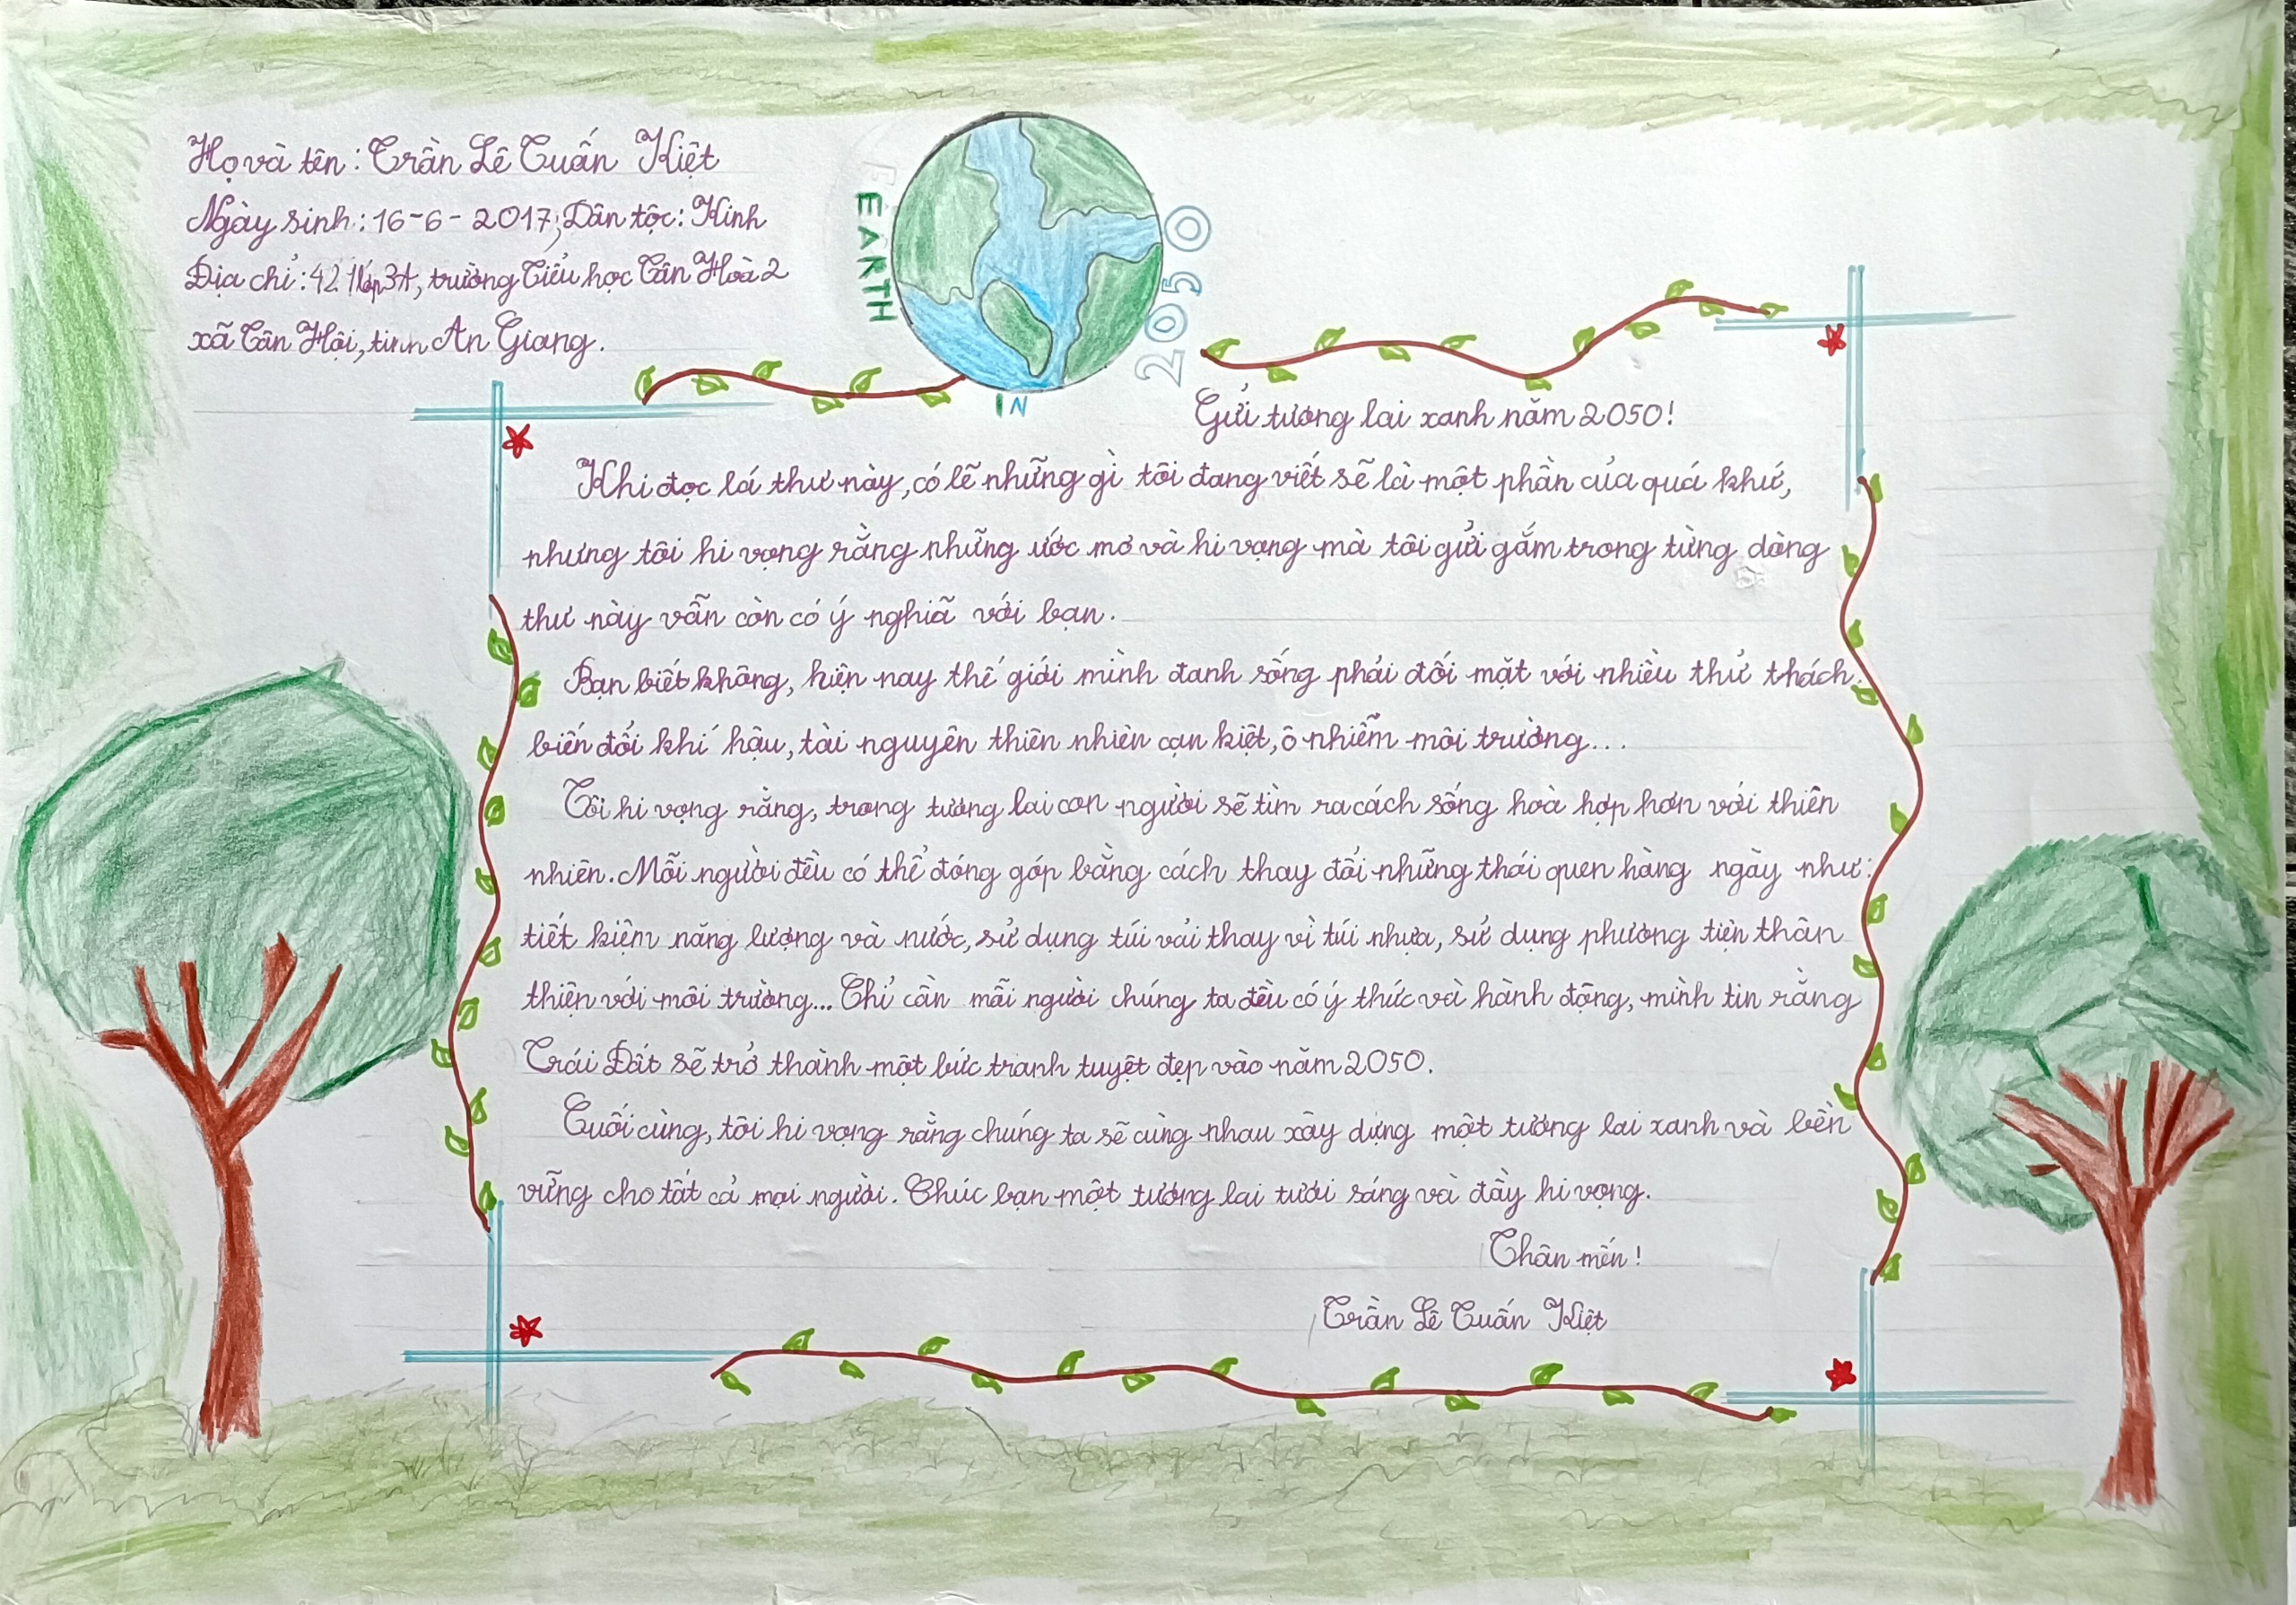 Họ và tên: Trần Lê Tuấn Kiệt
Ngày sinh: 16-6-2017; Dân tộc: Kinh
Địa chỉ: lớp 3A, trường Tiểu học Tân Hoà 2
xã Tân Hội, tỉnh An Giang.
EARTH
IN
2050
Gửi tương lai xanh năm 2050!
Khi đọc lá thư này, có lẽ những gì tôi đang viết sẽ là một phần của quá khứ,
nhưng tôi hi vọng rằng những ước mơ và hi vọng mà tôi gửi gắm trong từng dòng
thư này vẫn còn có ý nghiã với bạn.
Bạn biết không, hiện nay thế giới mình đanh sống phải đối mặt với nhiều thử thách:
biến đổi khí hậu, tài nguyên thiên nhiên cạn kiệt, ô nhiễm môi trường...
Tôi hi vọng rằng, trong tương lai con người sẽ tìm ra cách sống hoà hợp hơn với thiên
nhiên. Mỗi người đều có thể đóng góp bằng cách thay đổi những thói quen hàng ngày như:
tiết kiệm năng lượng và nước, sử dụng túi vải thay vì túi nhựa, sử dụng phương tiện thân
thiện với môi trường... Chỉ cần mỗi người chúng ta đều có ý thức và hành động, mình tin rằng
Trái Đất sẽ trở thành một bức tranh tuyệt đẹp vào năm 2050.
Cuối cùng, tôi hi vọng rằng chúng ta sẽ cùng nhau xây dựng một tương lai xanh và bền
vững cho tất cả mọi người. Chúc bạn một tương lai tươi sáng và đầy hi vọng.
Thân mến!
Trần Lê Tuấn Kiệt